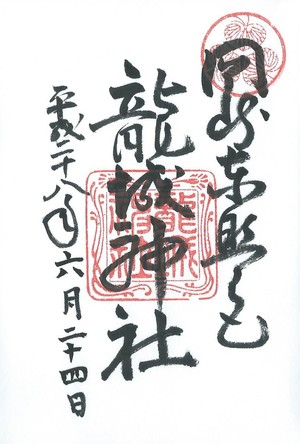 岡崎東照宮
龍城神社
平成二十八年六月二十四日